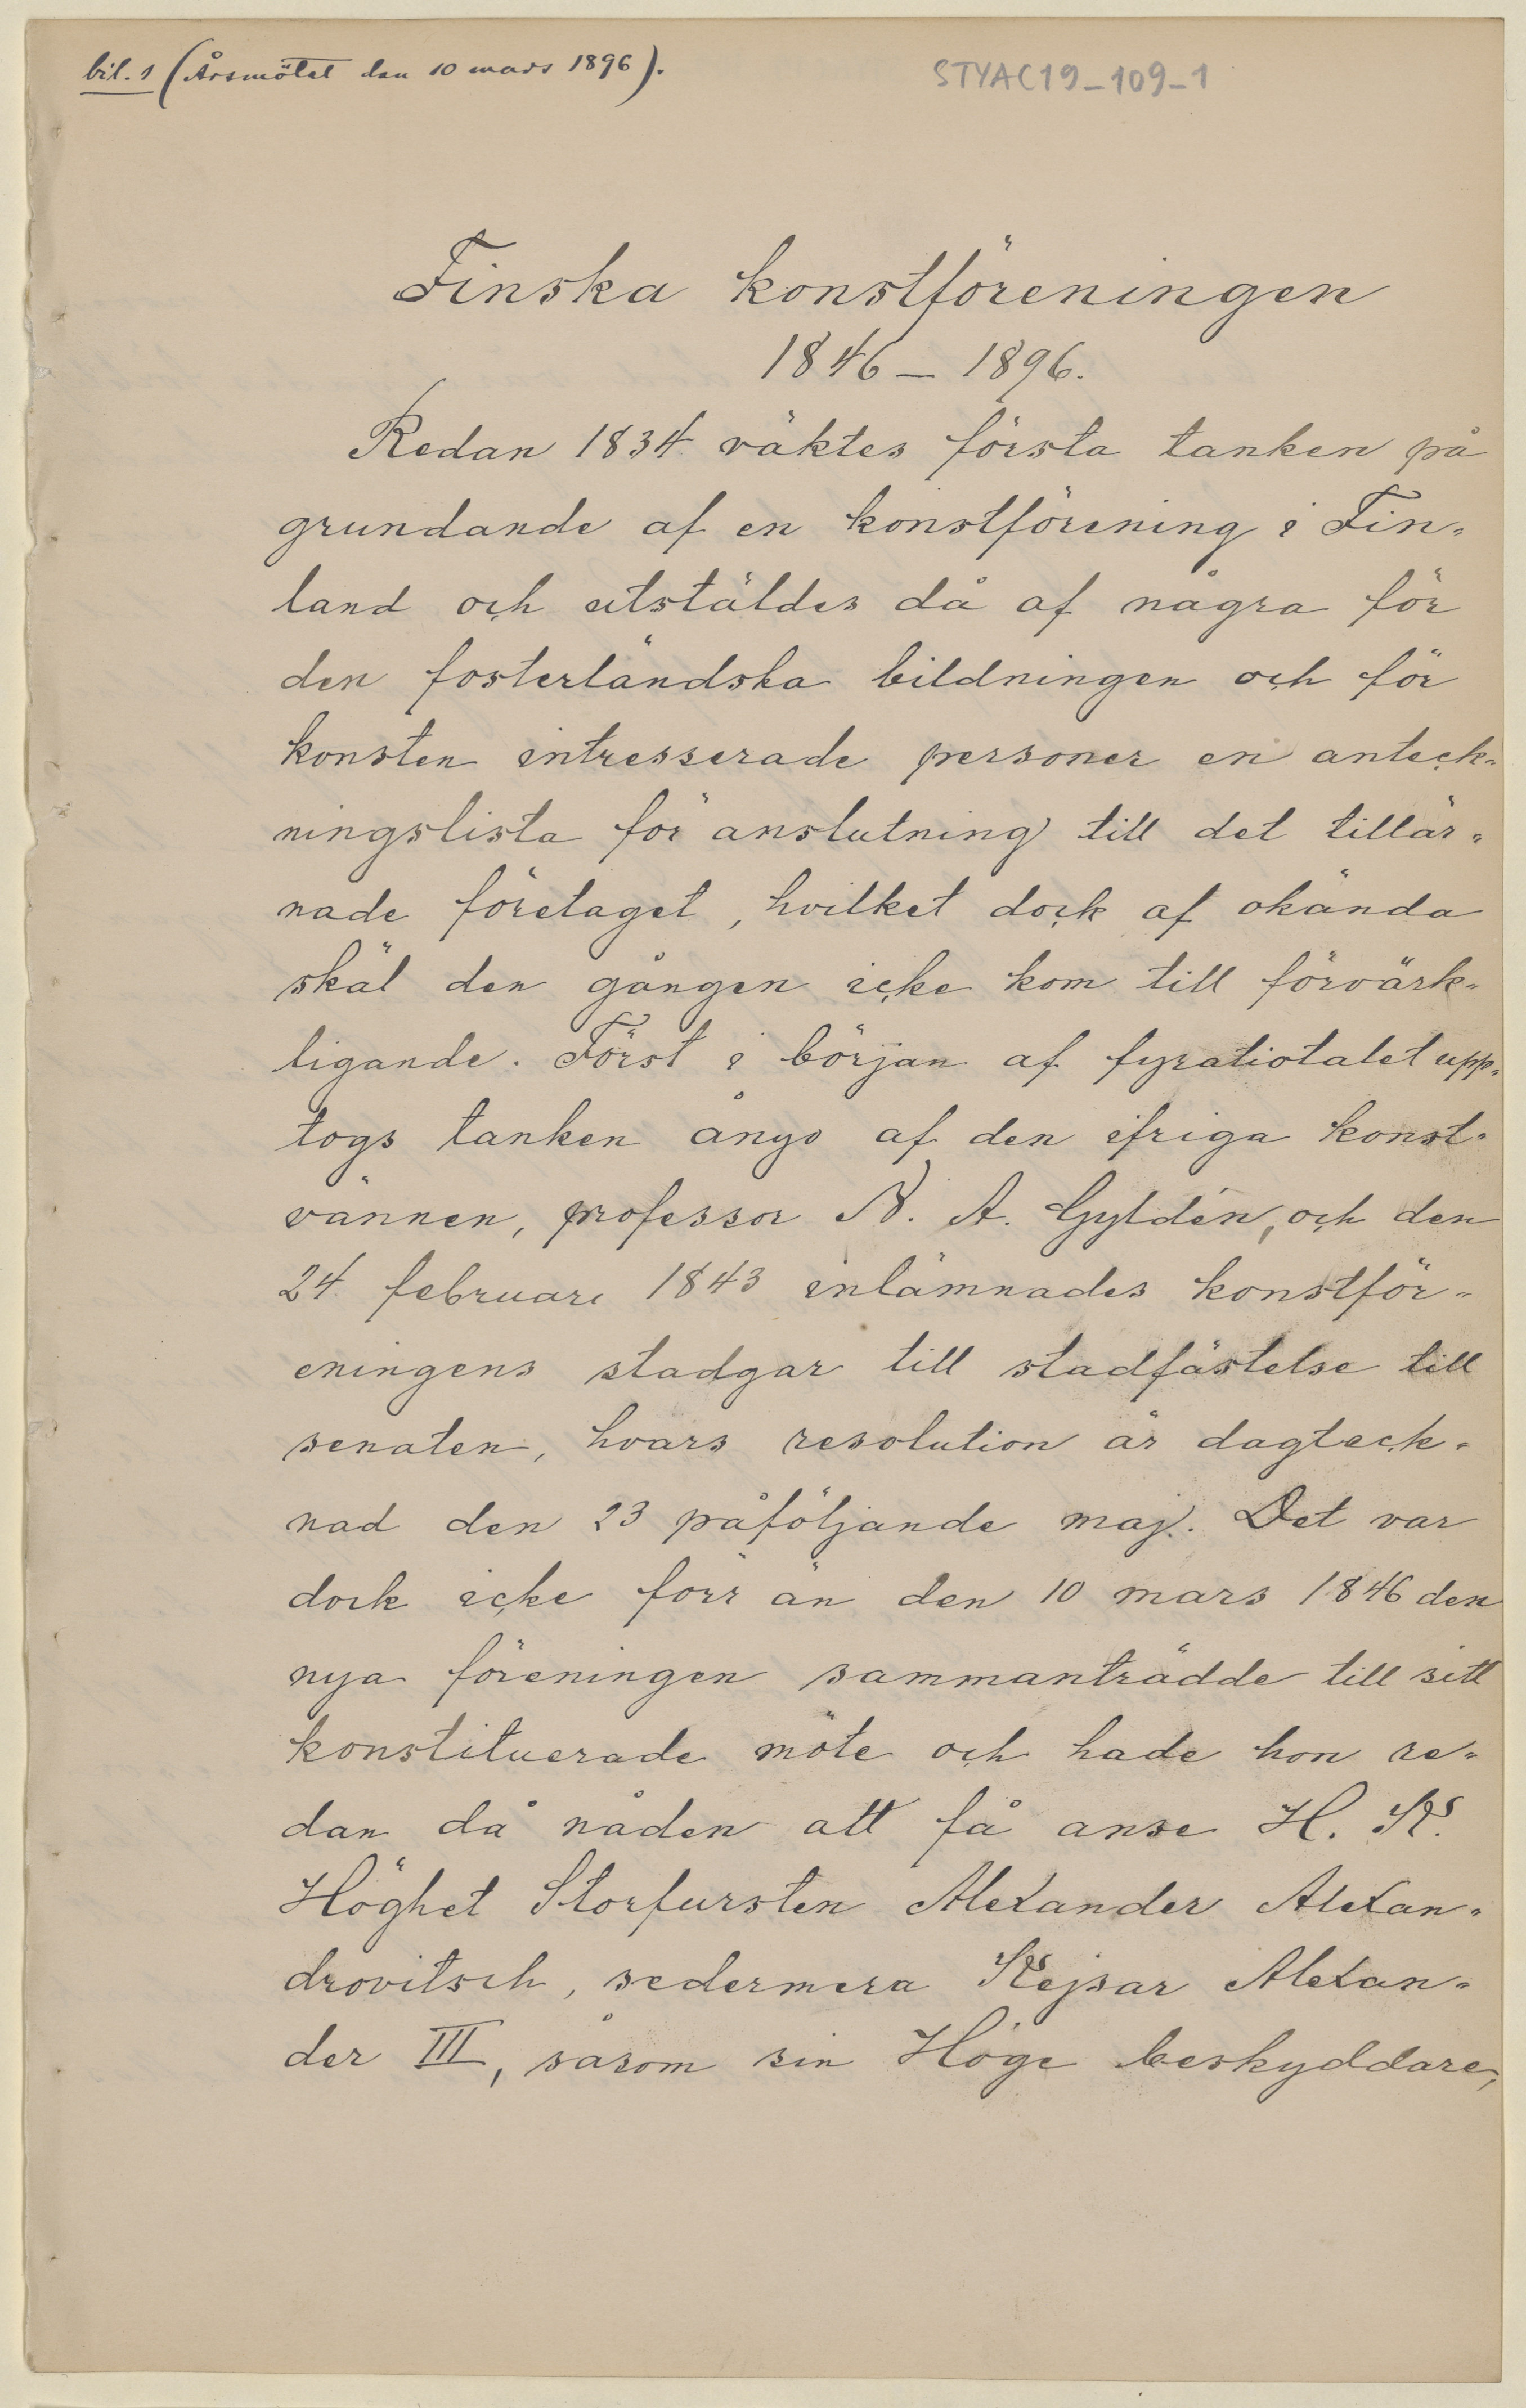 bil. 1 (Årsmötet den 10 mars 1896).
STYAC19_109_1
Finska konstföreningen
1846 – 1896.
Redan 1834 väktes första tanken på
grundande af en konstförening i Fin-
land och utstäldes då af några för
den fosterländska bildningen och för
konsten intresserade personer en anteck-
ningslista för anslutning till det tillär-
nade företaget, hvilket dock af okända
skäl den gången icke kom till förvärk-
ligande. Först i början af fyratiotalet upp-
togs tanken ånyo af den ifriga konst-
vännen, professor N. A. Gyldén, och den
24 februari 1843 inlämnades konstför-
eningens stadgar till stadfästelse till
senaten, hvars resolution är dagteck-
nad den 23 påföljande maj. Det var
dock icke förr än den 10 mars 1846 den
nya föreningen sammanträdde till sitt
konstituerade möte och hade hon re-
dan då nåden att få anse H. K.
Höghet Storfursten Alexander Alexan-
drovitsch, sedermera Kejsar Alexan-
der III, såsom sin Höge beskyddare,